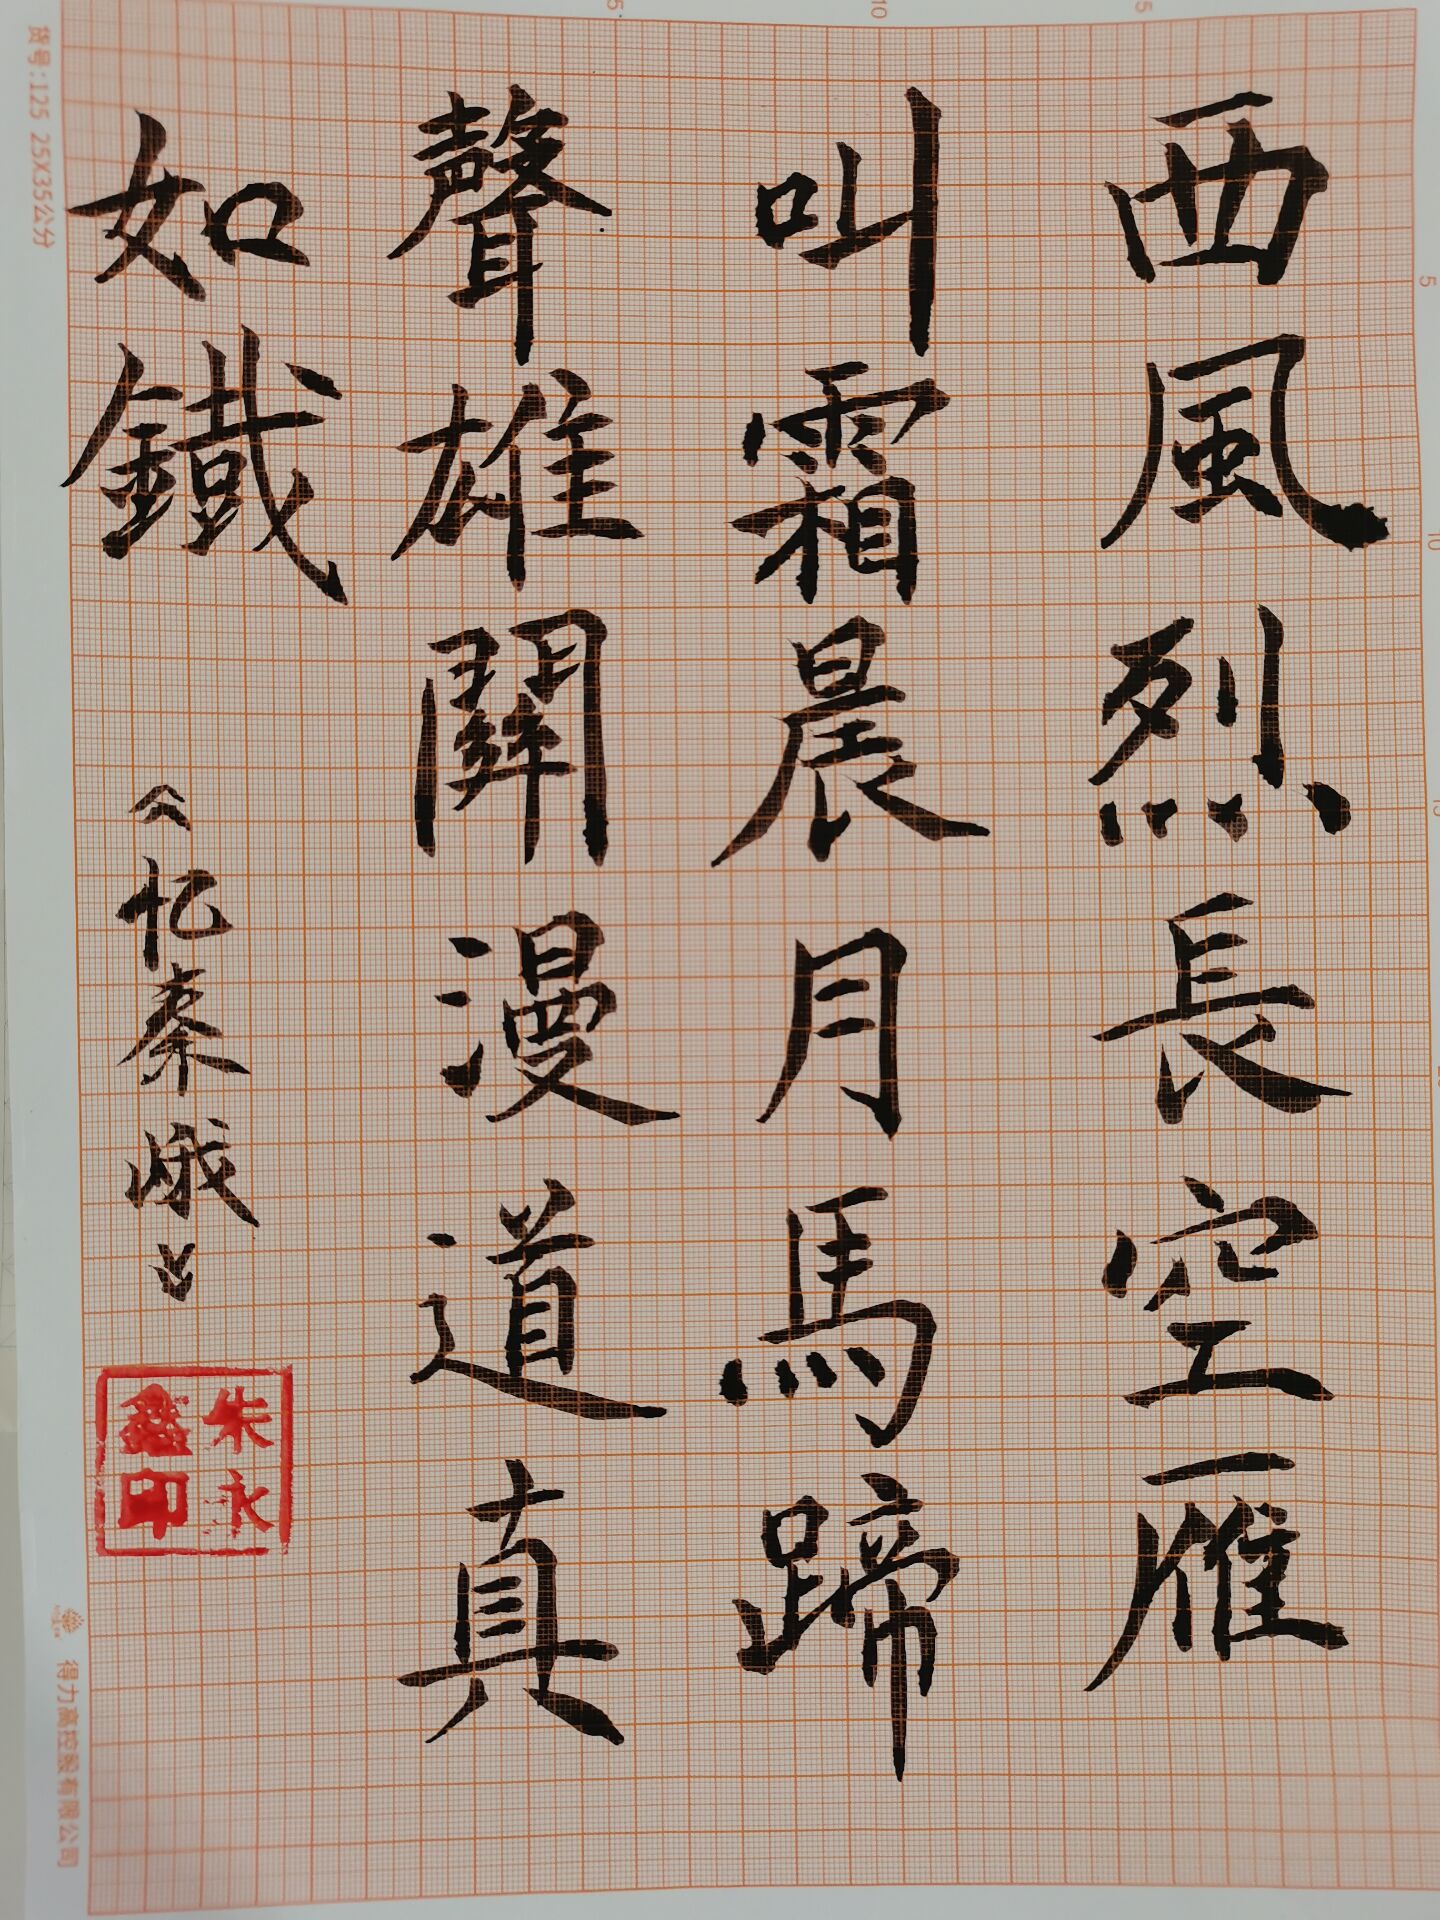 西風烈長空雁
叫霜晨月馬蹄
聲雄關漫道真
如鐵
《忆秦峨》
朱永
鑫印
货号:125 25X35公分
得力高控股有限公司
5
10
5
5
10
15
20